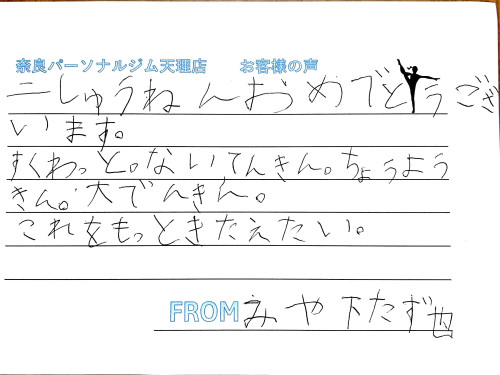 奈良パーソナルジム天理店 お客様の声
二しゅうねんおめでとうござ
います。
すくわっと。ないてんきん。ちょうよう
きん。大でんきん。
これをもっときたえたい。
FROM みや下たず也